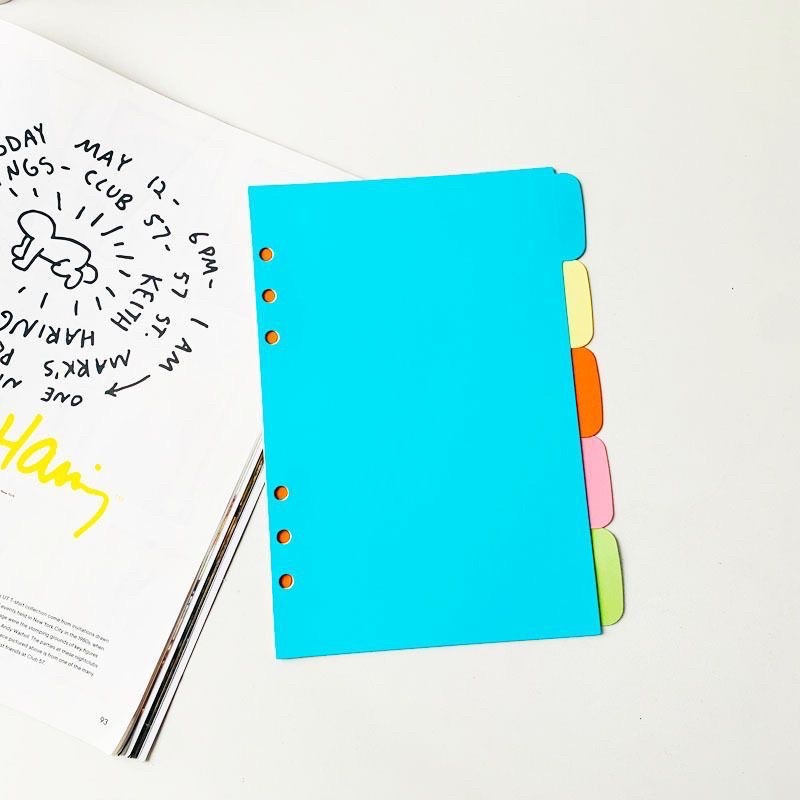 DAY MAY 12- 6PM- 1 AM
ONE
NGS - CLUB 57- 57 ST. MARK'S
KEITH HARING
Haring
New York
UT T-shirt collection come from invitations drawn
events held in New York City in the 1980s, when
were the stomping grounds of key figures
Andy Warhol. The parties at these nightclubs
pictured above is from one of the many
friends at Club 57.
93